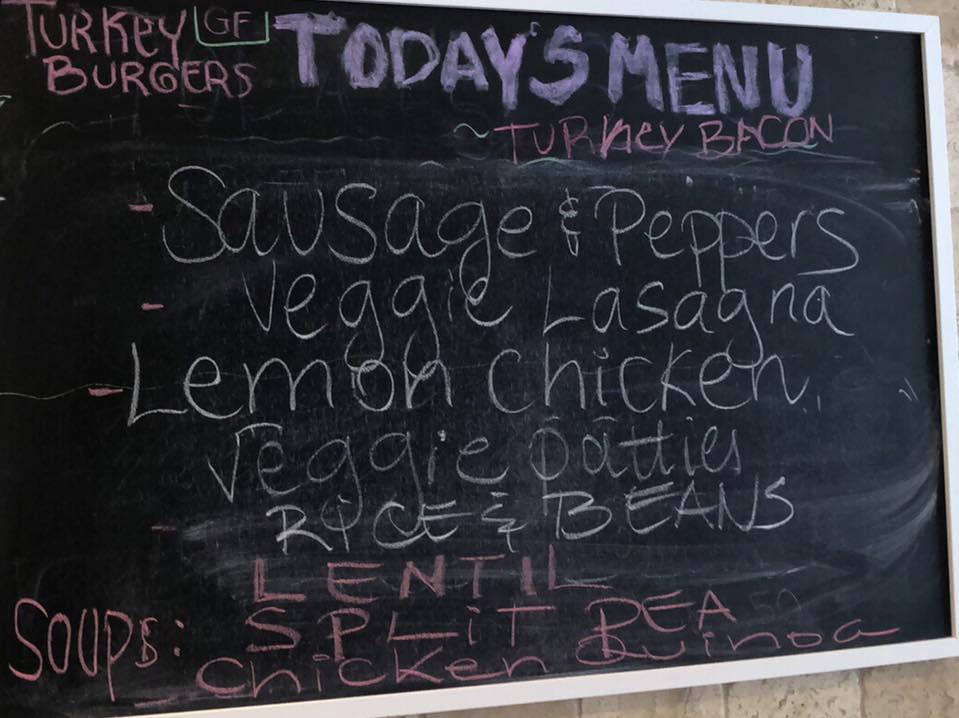 TURKEY GF
BURGERS
TODAY'S MENU
~ TURKEY BACON
- Sausage & Peppers
- Veggie Lasagna
- Lemon Chicken
Veggie patties
- RICE & BEANS
LENTIL
SOUPS: SPLIT PEA
Chicken Quinoa